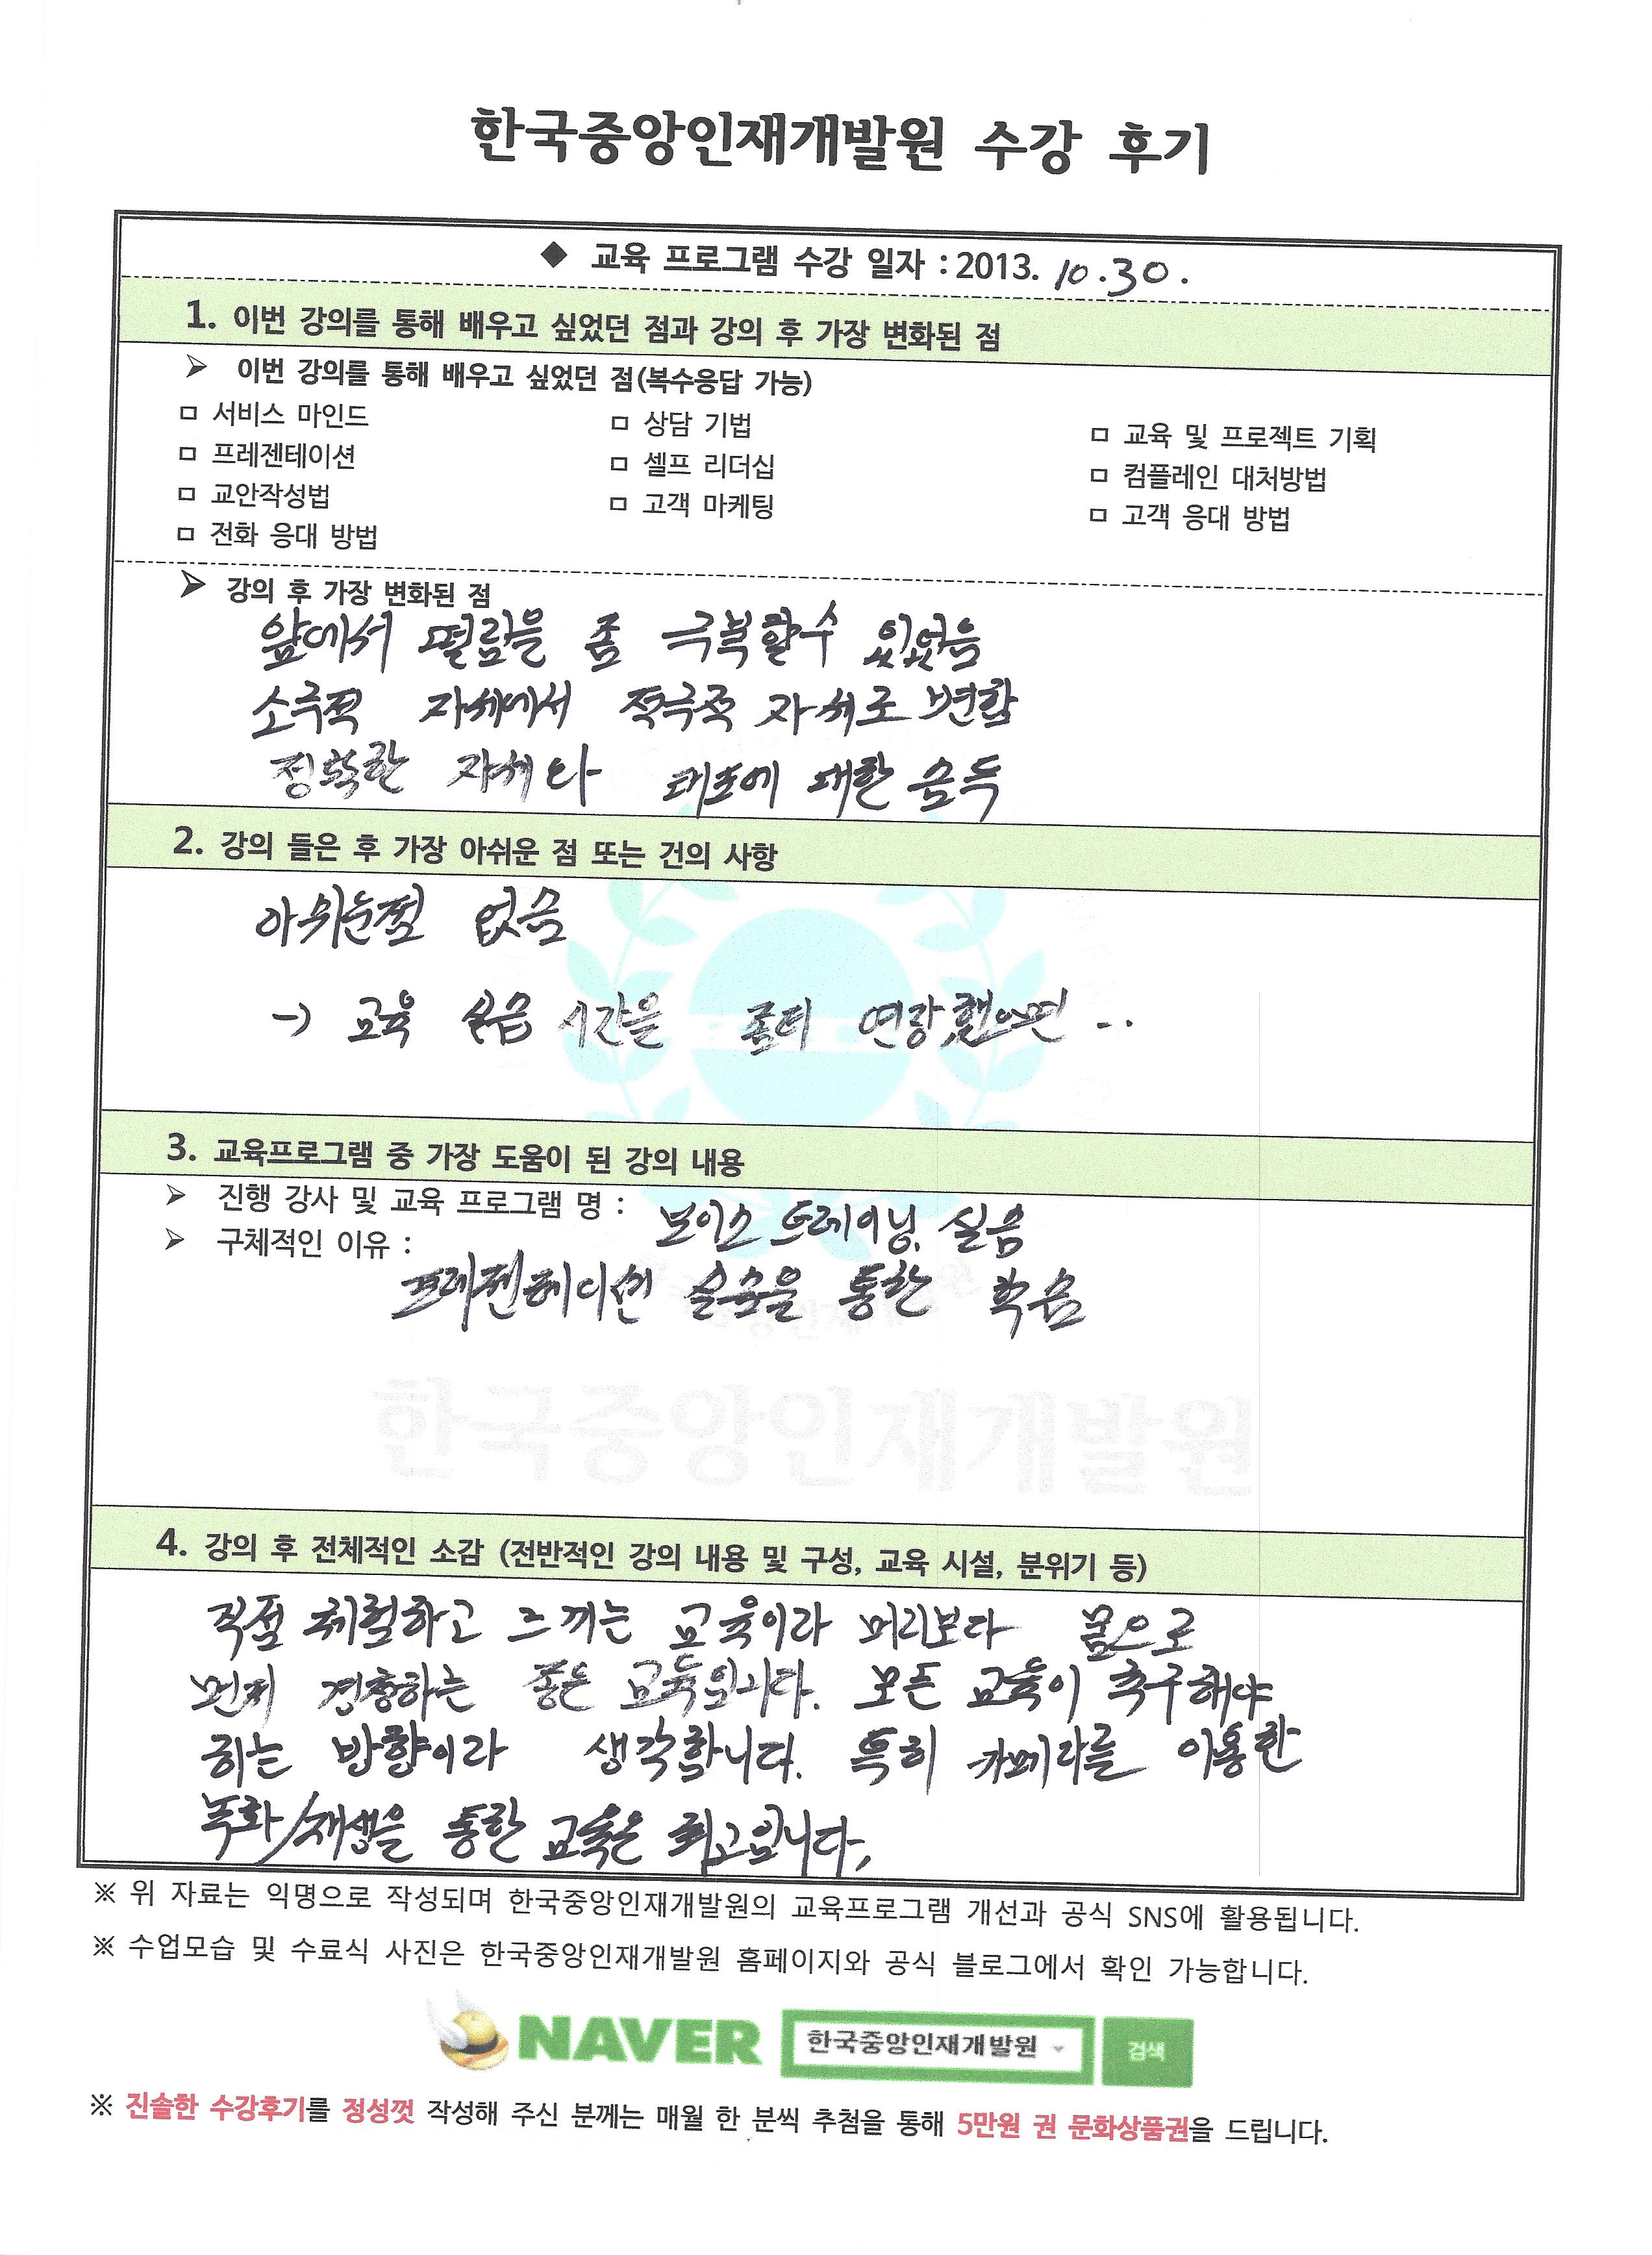 한국중앙인재개발원 수강 후기
◆ 교육 프로그램 수강 일자 : 2013. 10.30.
1. 이번 강의를 통해 배우고 싶었던 점과 강의 후 가장 변화된 점
➢ 이번 강의를 통해 배우고 싶었던 점(복수응답 가능)
□ 서비스 마인드 □ 상담 기법 □ 교육 및 프로젝트 기획
□ 프레젠테이션 □ 셀프 리더십 □ 컴플레인 대처방법
□ 교안작성법 □ 고객 마케팅 □ 고객 응대 방법
□ 전화 응대 방법
➢ 강의 후 가장 변화된 점
앞에서 떨림을 좀 극복할수 있었음
소극적 자세에서 적극적 자세로 변함
정확한 자세와 태도에 대한 습득
2. 강의 들은 후 가장 아쉬운 점 또는 건의 사항
아쉬운점 없음
→ 교육 실습 시간을 좀더 연장했으면 ...
3. 교육프로그램 중 가장 도움이 된 강의 내용
➢ 진행 강사 및 교육 프로그램 명 : 보이스 트레이닝, 실습
➢ 구체적인 이유 :
프레젠테이션 실습을 통한 학습
한국중앙인재개발원
4. 강의 후 전체적인 소감 (전반적인 강의 내용 및 구성, 교육 시설, 분위기 등)
직접 체험하고 느끼는 교육이라 머리보다 몸으로
먼저 경험하는 좋은 교육입니다. 모든 교육이 추구해야
하는 방향이라 생각합니다. 특히 카메라를 이용한
녹화/재생을 통한 교육은 최고입니다.
※ 위 자료는 익명으로 작성되며 한국중앙인재개발원의 교육프로그램 개선과 공식 SNS에 활용됩니다.
※ 수업모습 및 수료식 사진은 한국중앙인재개발원 홈페이지와 공식 블로그에서 확인 가능합니다.
NAVER 한국중앙인재개발원 검색
※ 진솔한 수강후기를 정성껏 작성해 주신 분께는 매월 한 분씩 추첨을 통해 5만원 권 문화상품권을 드립니다.